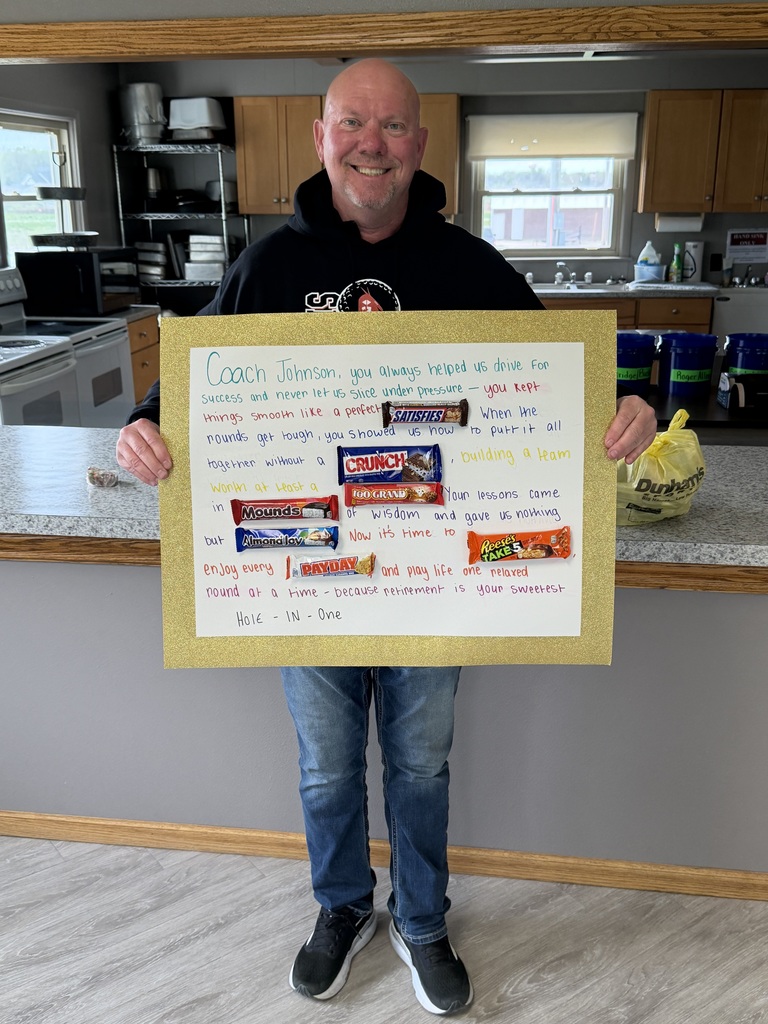 Coach Johnson, you always helped us drive for
success and never let us slice under pressure - you kept
things smooth like a perfect SATISFIES. When the
rounds get tough, you showed us how to putt it all
together without a CRUNCH, building a team
worth at least a 100 GRAND. Your lessons came
in Mounds of wisdom and gave us nothing
but Almond Joy. Now it's time to Reese's TAKE 5,
enjoy every PAYDAY and play life one relaxed
round at a time - because retirement is your sweetest
Hole - IN - One
Dunham's
Roger
HAND SINK
ONLY